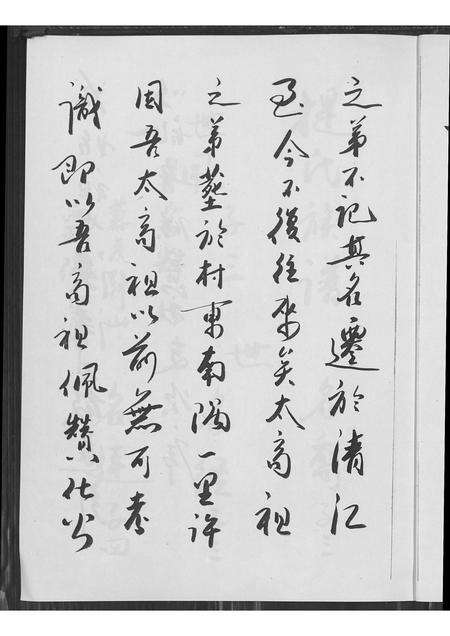 之弟不记其名遷於清江
至今不復往來矣太高祖
之弟墓於村東南隅一里许
因吾太高祖以前無可考
識即以吾高祖佩贊